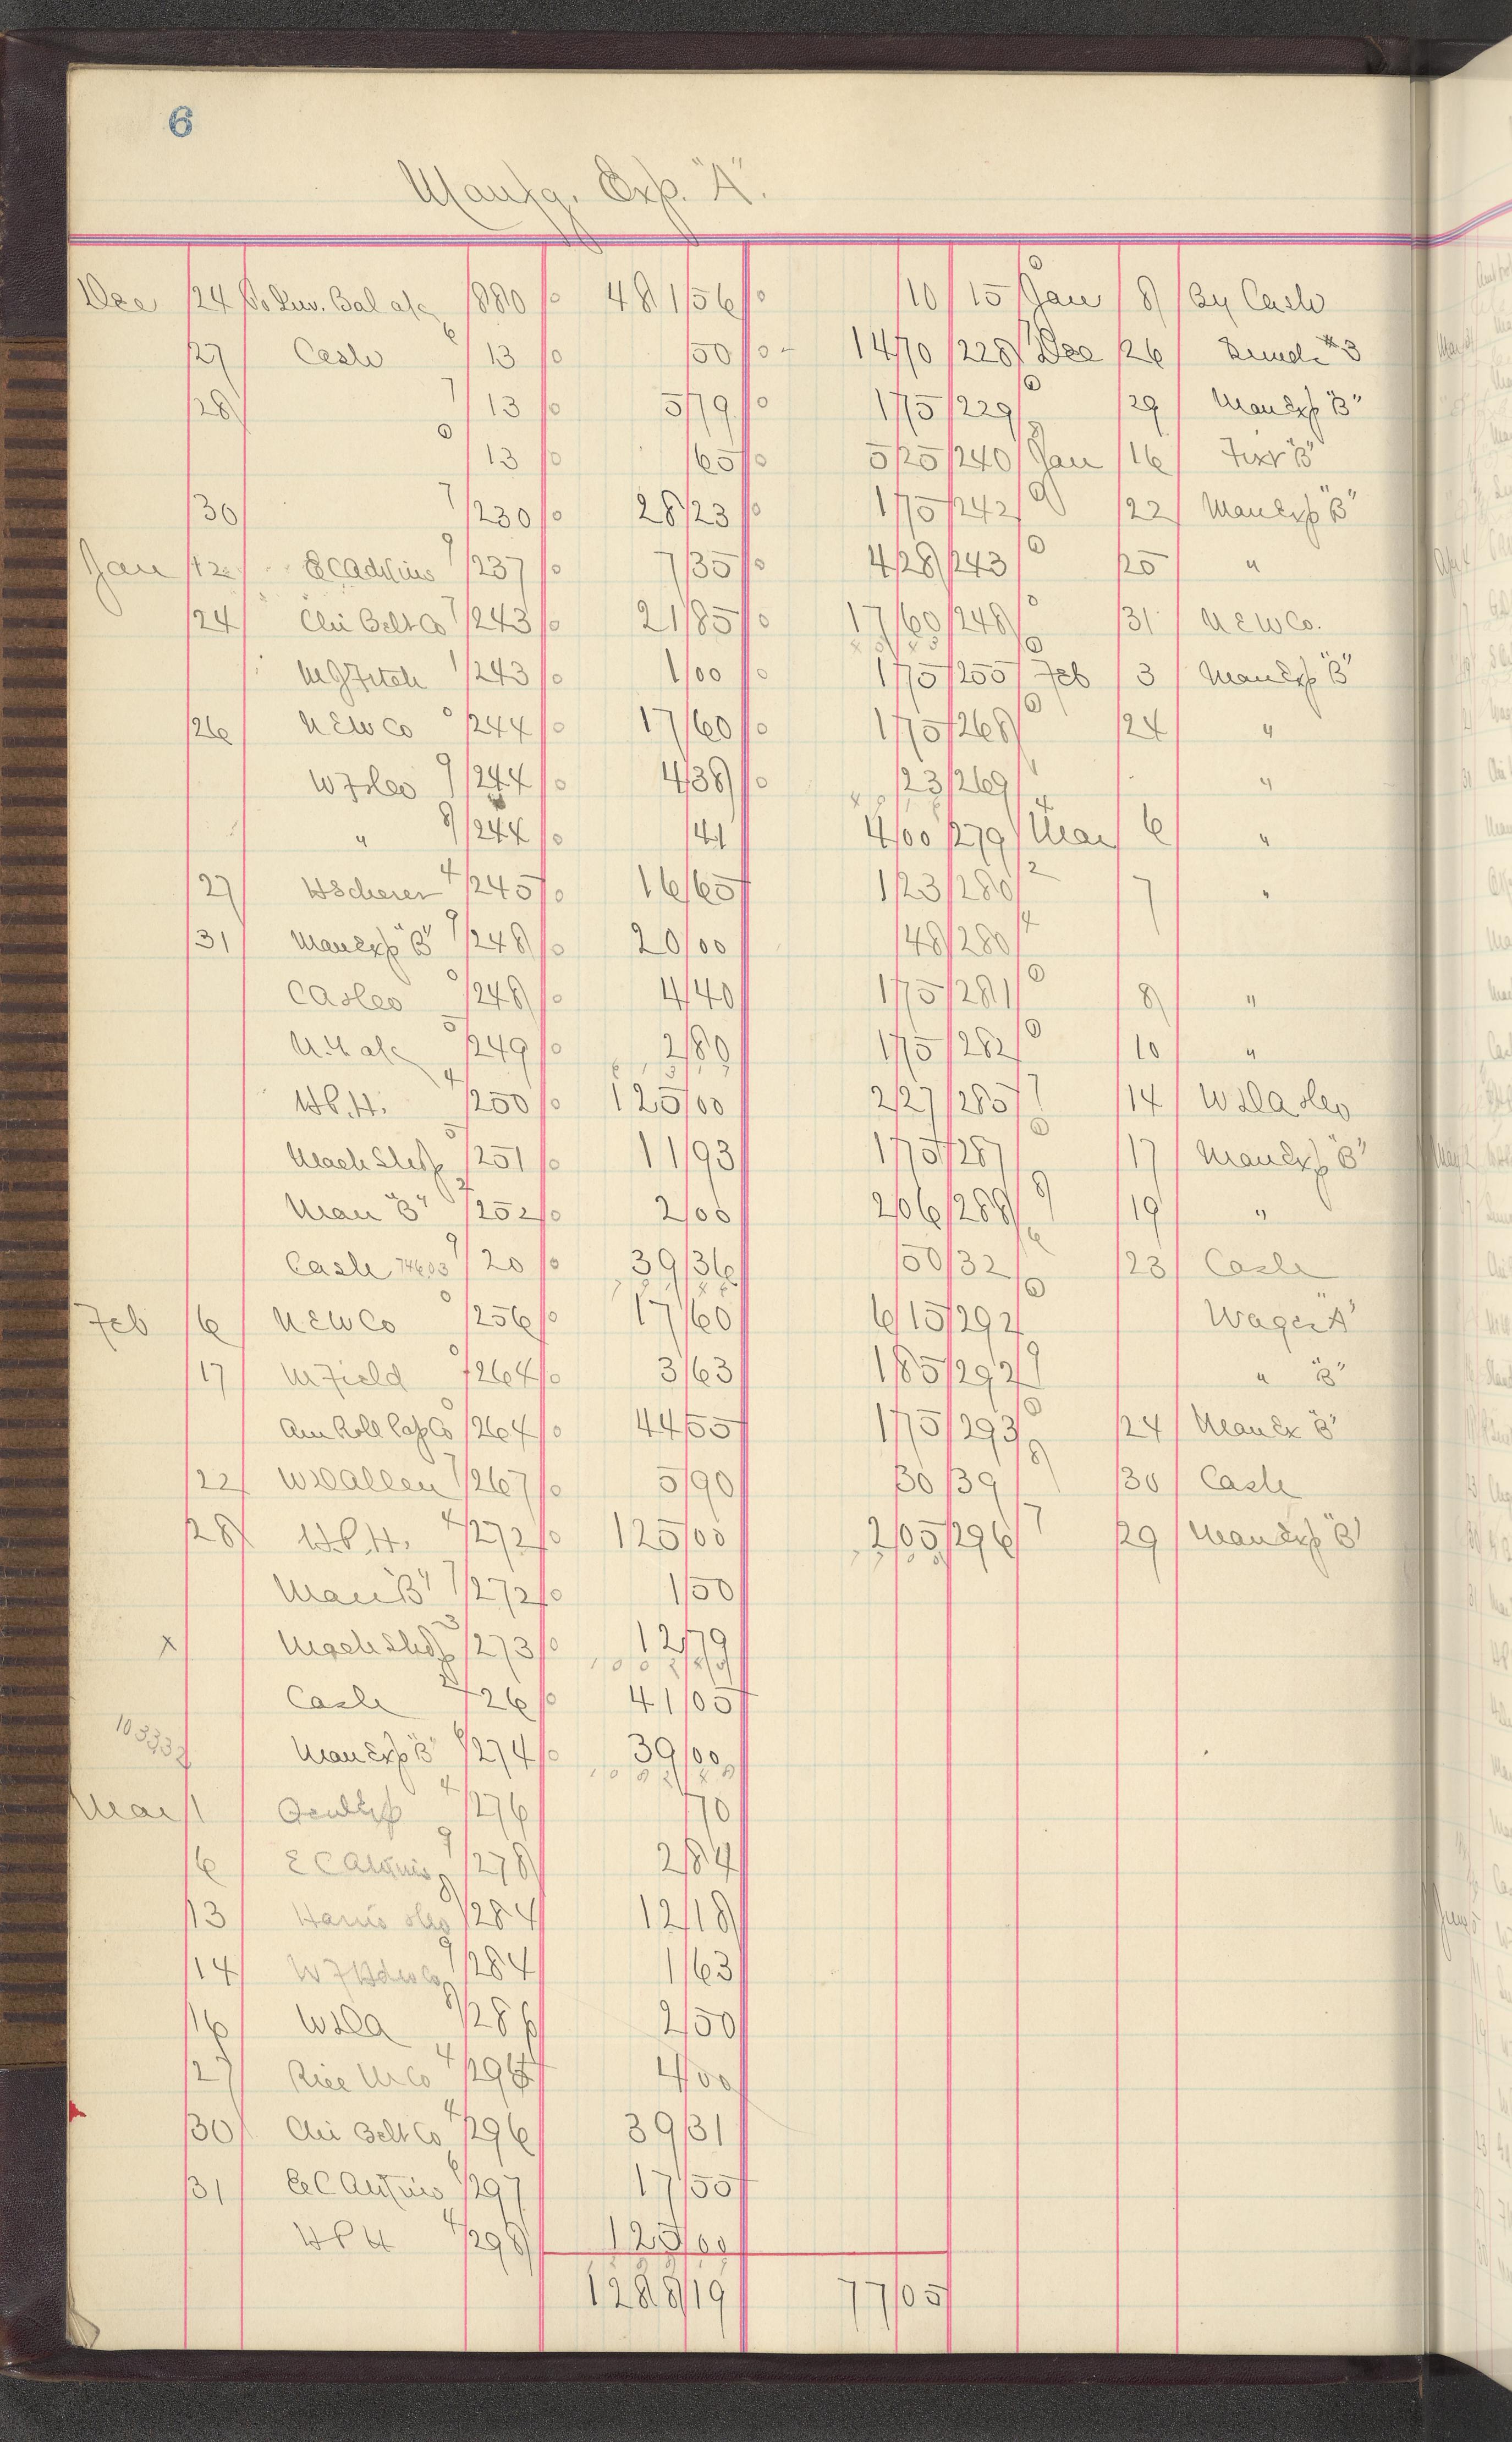 6
Manfg. Exp. "A".
Dec 24 To Inv. Bal a/c 880 481 56 10 15 Jan 8 By Cash
27 Cash 13 50 14 70 228 Dec 26 Sund. #3
28 13 5 79 1 75 229 29 Man Exp "B"
13 65 5 25 240 Jan 16 Fixt "B"
30 230 28 23 1 75 242 22 Man Exp "B"
Jan 237 7 35 4 28 243 25 "
24 Chi Belt Co 243 21 85 17 60 248 31 N E W Co.
M J Fitch 243 1 00 1 75 255 Feb 3 Man Exp "B"
26 N E W Co 244 17 60 1 75 268 24 "
244 4 38 23 269 "
" 244 41 4 00 279 Mar 6 "
27 H Scherer 245 16 65 1 23 280 7 "
31 Man Exp "B" 248 20 00 48 280
248 4 40 1 75 281 8 "
249 2 80 1 75 282 10 "
H P. H. 250 125 00 2 27 285 14
Mach Shop 251 11 93 1 75 287 17 Man Exp "B"
Man "B" 252 2 00 2 06 288 19 "
Cash 20 39 36 50 32 23 Cash
Feb 6 N E W Co 256 17 60 6 15 292 Wages "A"
17 M Field 264 3 63 1 85 292 " "B"
Am Roll Co 264 44 55 1 75 293 24 Man Ex "B"
22 W S Allen 267 5 90 30 39 30 Cash
28 H P. H. 272 125 00 2 05 296 29 Man Exp "B"
Man "B" 272 1 50
x Mach Shop 273 12 79
Cash 26 41 05
1033 32 Man Exp "B" 274 39 00
Mar 1 Gen Exp 276 70
6 278 2 84
13 284 12 18
14 284 1 63
16 W S A 286 2 50
27 Rice M Co 4 00
30 Chi Belt Co 296 39 31
31 297 17 55
H P H 298 125 00
1288 19 77 05